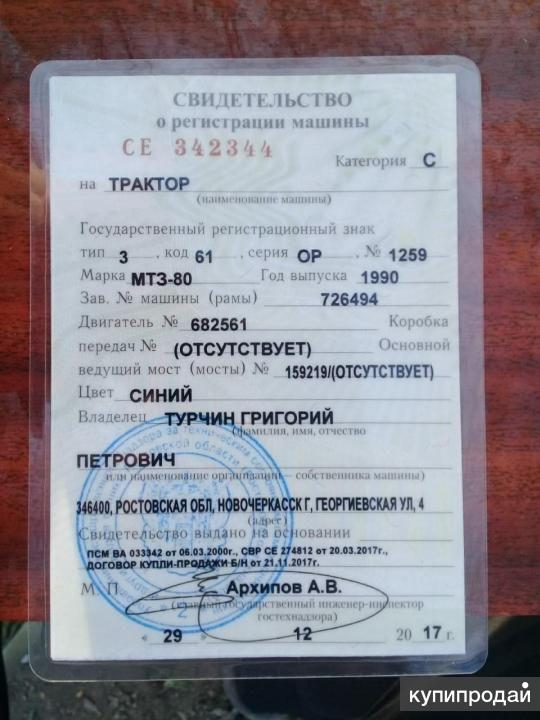 СВИДЕТЕЛЬСТВО
о регистрации машины
СЕ 342344
Категория С
на ТРАКТОР
(наименование машины)
Государственный регистрационный знак
тип 3, код 61, серия ОР, № 1259
Марка МТЗ-80 Год выпуска 1990
Зав. № машины (рамы) 726494
Двигатель № 682561 Коробка
передач № (ОТСУТСТВУЕТ) Основной
ведущий мост (мосты) № 159219/(ОТСУТСТВУЕТ)
Цвет СИНИЙ
Владелец ТУРЧИН ГРИГОРИЙ
(фамилия, имя, отчество
ПЕТРОВИЧ
или наименование организации – собственника машины)
346400, РОСТОВСКАЯ ОБЛ, НОВОЧЕРКАССК Г, ГЕОРГИЕВСКАЯ УЛ, 4
(адрес)
Свидетельство выдано на основании
ПСМ ВА 033342 от 06.03.2000г., СВР СЕ 274812 от 20.03.2017г.,
ДОГОВОР КУПЛИ-ПРОДАЖИ Б/Н от 21.11.2017г.
М. П. Архипов А.В.
(главный государственный инженер-инспектор
гостехнадзора)
« 29 » 12 2017 г.
купипродай